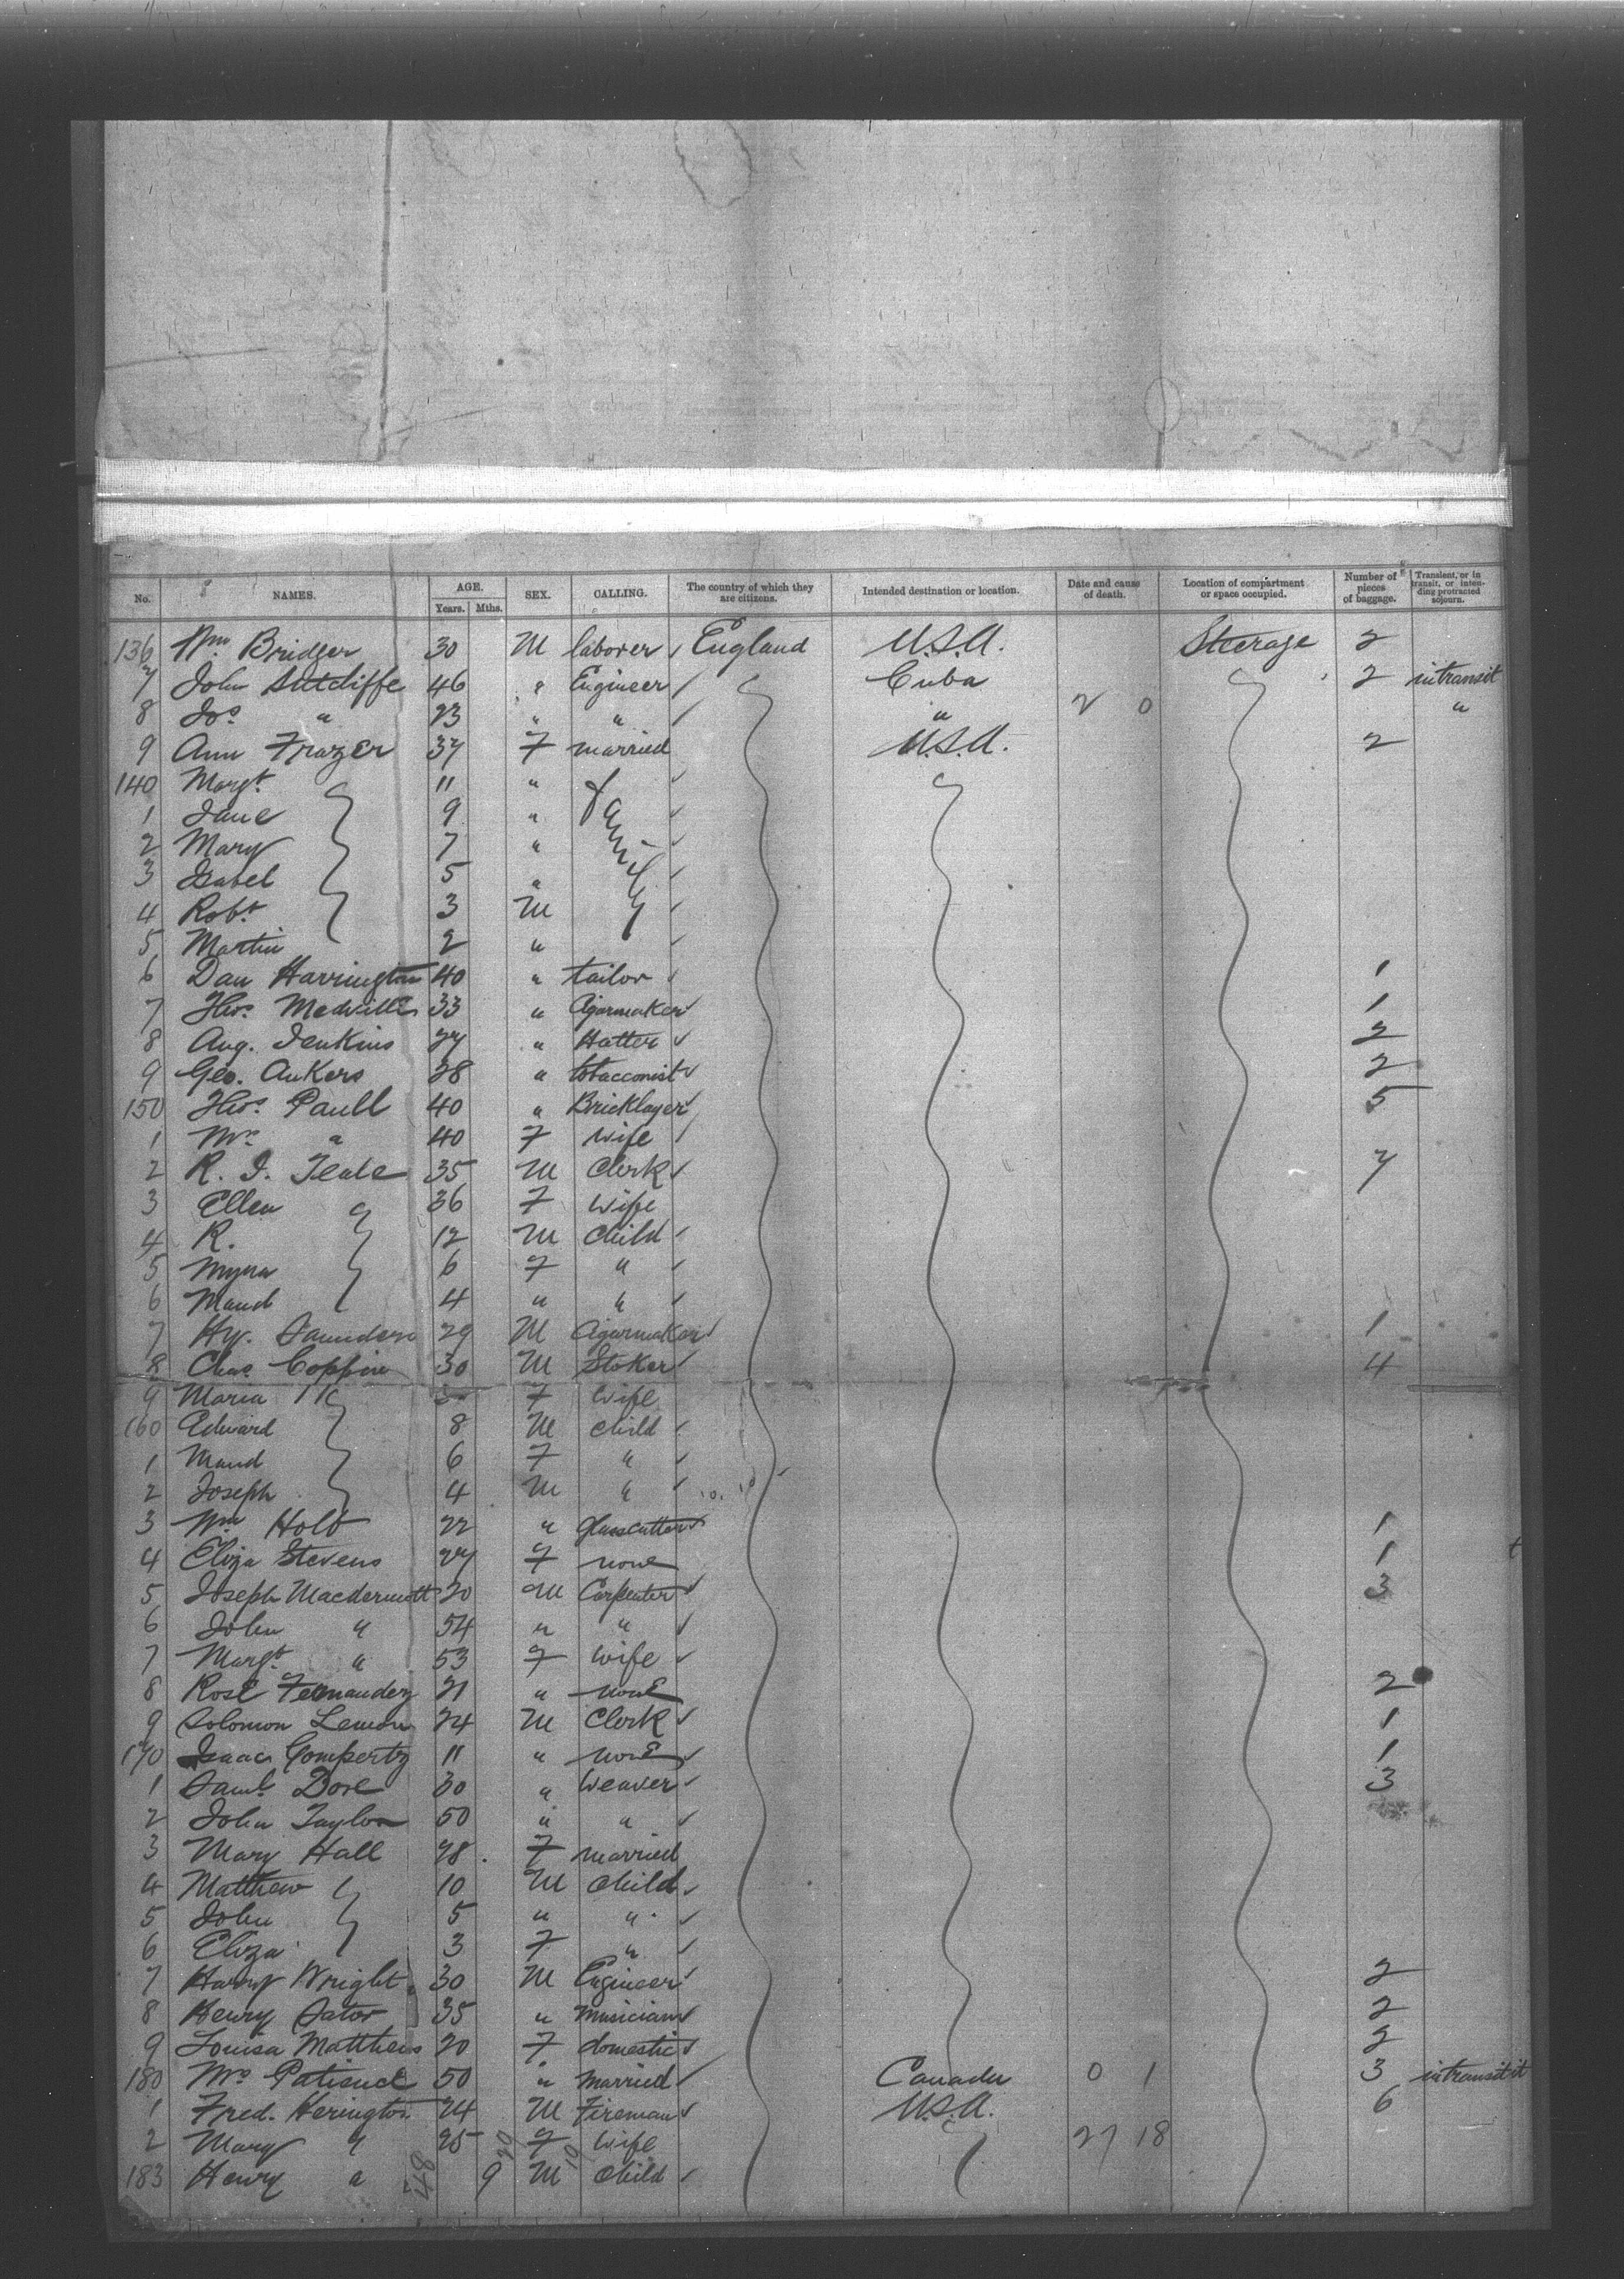 No. NAMES. AGE. Years. Mths. SEX. CALLING. The country of which they are citizens. Intended destination or location. Date and cause of death. Location of compartment or space occupied. Number of pieces of baggage. Transient, or in transit, or intending protracted sojourn.
136 Wm Bridger 30 M laborer England U.S.A. Steerage 2
7 John Sutcliffe 46 " Engineer Cuba 2 in transit
8 Jos " 23 " " " 2 0 "
9 Ann Frazer 37 F married U.S.A. 2
140 Margt 11 " Family
1 Jane 9 "
2 Mary 7 "
3 Isabel 5 "
4 Robt 3 M
5 Martin 2 "
6 Dan Harrington 40 " tailor 1
7 Thos 33 " Cigarmaker 1
8 Aug. Jenkins 27 " Hatter 2
9 Geo. Ankers 38 " tobacconist 2
150 Thos Paull 40 " Bricklayer 5
1 Mrs " 40 F wife
2 R. J. Teale 35 M Clerk 7
3 Ellen 36 F wife
4 R. 12 M child
5 Myra 6 F "
6 Maud 4 " "
7 Hy. Saunders 29 M Cigarmaker 1
8 Chas Coppin 30 M Stoker 4
9 Maria F wife
160 Edward 8 M child
1 Maud 6 F "
2 Joseph 4 M "
3 Wm Holt 22 " Glasscutter 1
4 Eliza Stevens 27 F none 1
5 Joseph Macdermott 20 M Carpenter 3
6 John " 54 " "
7 Margt " 53 F wife
8 Rose Fernandez 21 " none 2
9 Solomon Lemon 24 M Clerk 1
170 Isaac Gompertz 11 " none 1
1 Saml Dove 30 " Weaver 3
2 John Taylor 50 " "
3 Mary Hall 28 F married
4 Matthew 10 M child
5 John 5 " "
6 Eliza 3 F "
7 Harry Wright 30 M Engineer 2
8 Henry Sator 35 " musician 2
9 Louisa Matthews 20 F domestic 2
180 Mrs Patience 50 " married Canada 0 1 3 in transit
1 Fred. Herington 24 M Fireman U.S.A. 6
2 Mary " 25 F wife 27 18
183 Henry " 9 M child
48 20 10